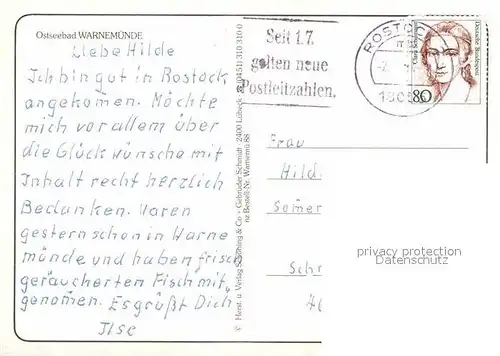 Ostseebad WARNEMÜNDE
Liebe Hilde
Ich bin gut in Rostock
angekommen. Möchte
mich vor allem über
die Glückwünsche mit
Inhalt recht herzlich
Bedanken. Waren
gestern schon in Warne
münde und haben frisch
geräucherten Fisch mit
genomen. Es grüßt Dich
Ilse
Herst. u. Verlag Schöning & Co · Gebrüder Schmidt · 2400 Lübeck
Bestell-Nr. Warnemü 88
Seit 1.7.
gelten neue
Postleitzahlen.
ROSTO
80
Deutsche Bundespost
Clara Schumann
Frau
Hild
Somer
Schr
privacy protection
Datenschutz